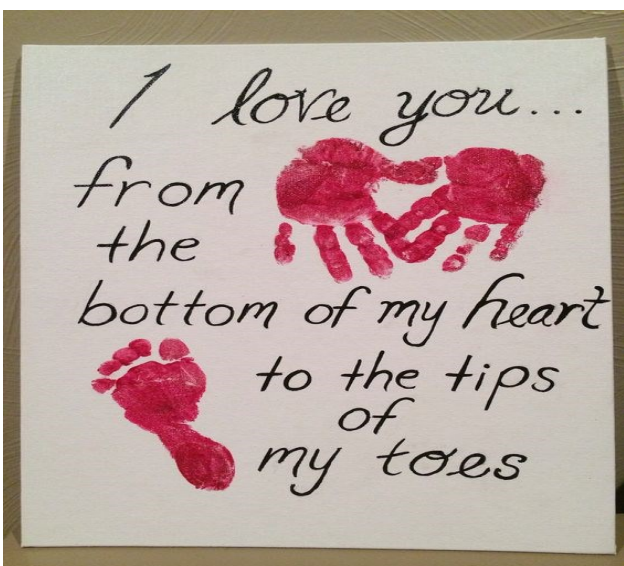 I love you...
from
the
bottom of my heart
to the tips
of
my toes